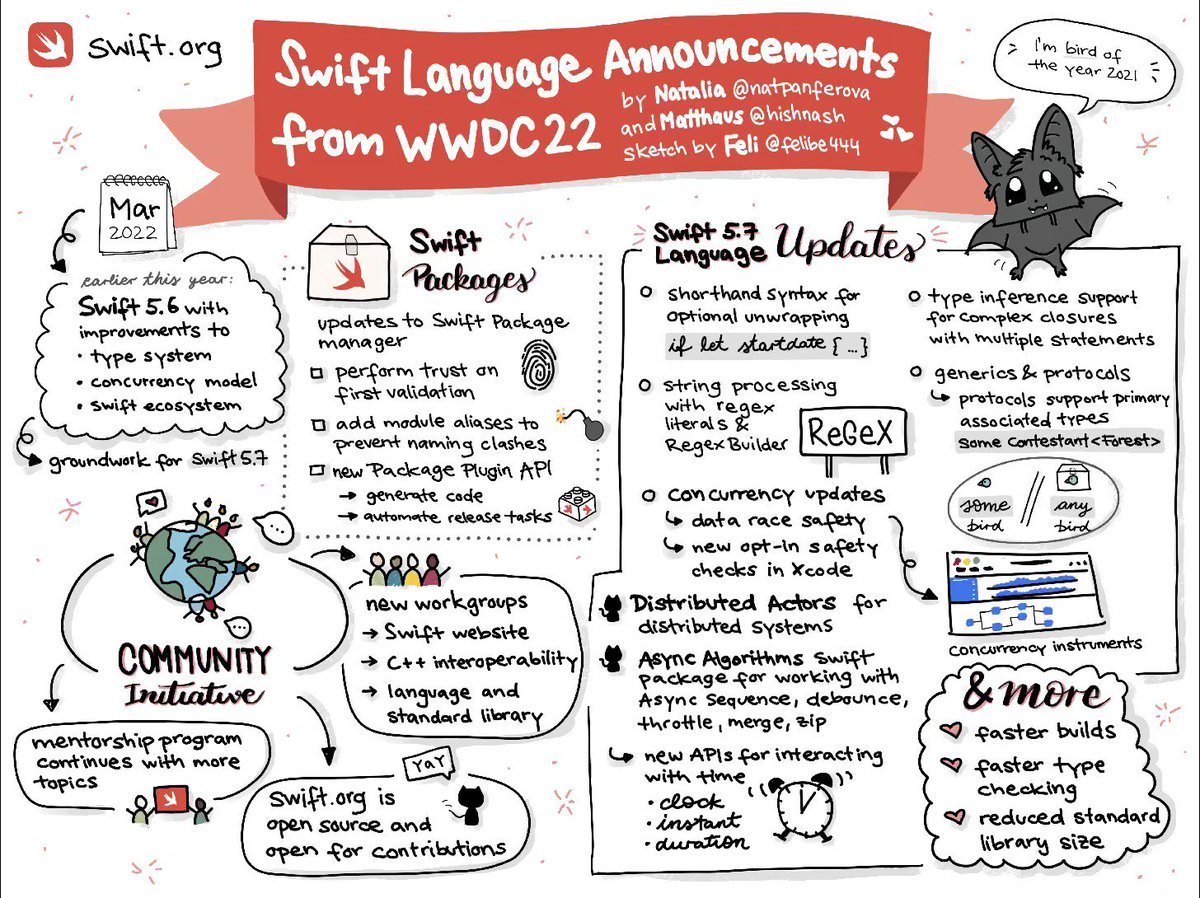 swift.org
Swift Language Announcements
from WWDC22
by Natalia @natpanferova
and Matthaus @hishnash
sketch by Feli @felibe444
I'm bird of
the year 2021
Mar
2022
earlier this year:
Swift 5.6 with
improvements to
• type system
• concurrency model
• swift ecosystem
groundwork for Swift 5.7
Swift
Packages
updates to Swift Package
manager
perform trust on
first validation
add module aliases to
prevent naming clashes
new Package Plugin API
→ generate code
→ automate release tasks
COMMUNITY
Initiative
new workgroups
→ Swift website
→ C++ interoperability
→ language and
standard library
mentorship program
continues with more
topics
YAY
swift.org is
open source and
open for contributions
Swift 5.7
Language Updates
shorthand syntax for
optional unwrapping
if let startdate { ... }
string processing
with regex
literals &
RegexBuilder
ReGeX
concurrency updates
↳ data race safety
↳ new opt-in safety
checks in Xcode
Distributed Actors for
distributed systems
Async Algorithms Swift
package for working with
Async Sequence, debounce,
throttle, merge, zip
↳ new APIs for interacting
with time
• clock
• instant
• duration
type inference support
for complex closures
with multiple statements
generics & protocols
↳ protocols support primary
associated types
some Contestant<Forest>
some
bird
//
any
bird
concurrency instruments
& more
faster builds
faster type
checking
reduced standard
library size